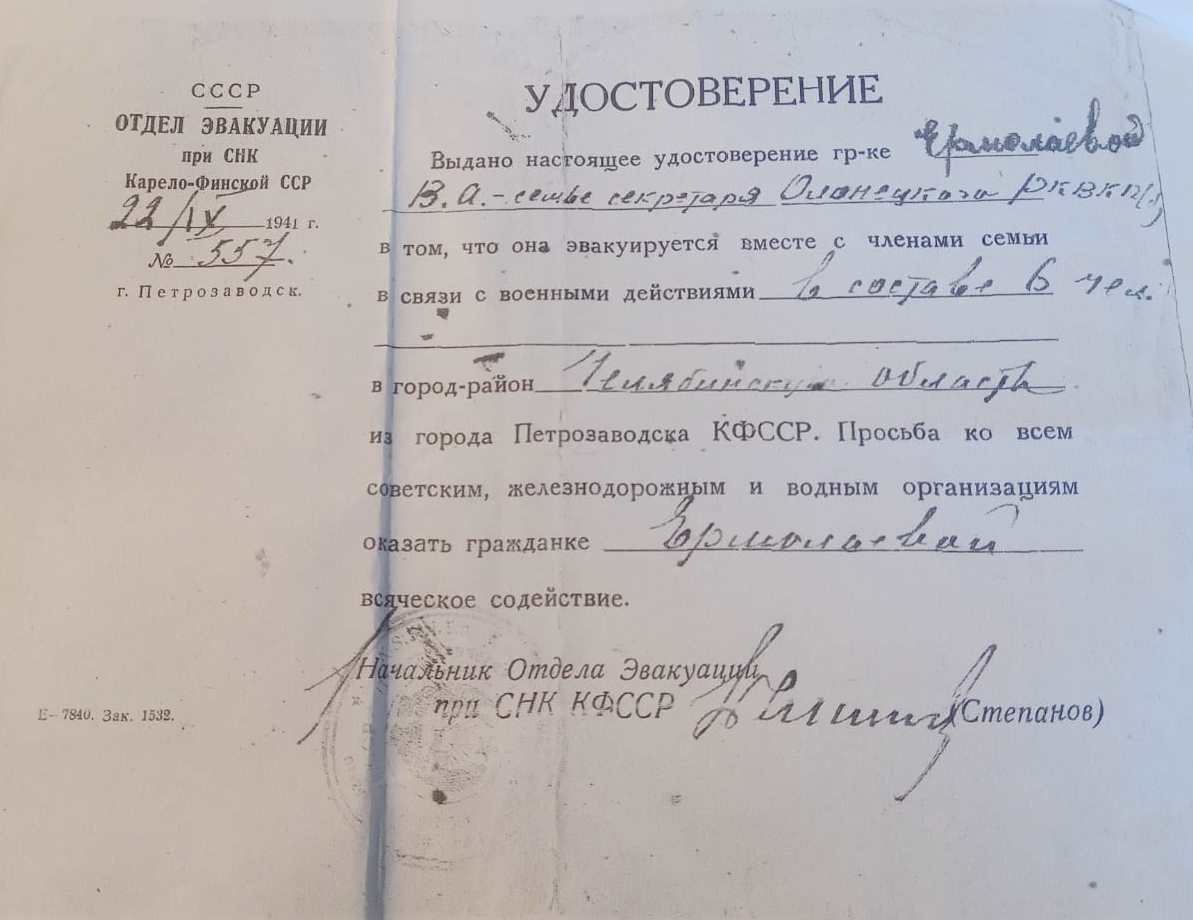 СССР
ОТДЕЛ ЭВАКУАЦИИ
при СНК
Карело-Финской ССР
22/IX 1941 г.
№ 557.
г. Петрозаводск.
УДОСТОВЕРЕНИЕ
Выдано настоящее удостоверение гр-ке Ермолаевой
В. А. - семье секретаря Олонецкого РКВКП(б)
в том, что она эвакуируется вместе с членами семьи
в связи с военными действиями в составе 6 чел.
в город-район Челябинскую область
из города Петрозаводска КФССР. Просьба ко всем
советским, железнодорожным и водным организациям
оказать гражданке Ермолаевой
всяческое содействие.
Начальник Отдела Эвакуации
при СНК КФССР (Степанов)
Е-7840. Зак. 1532.